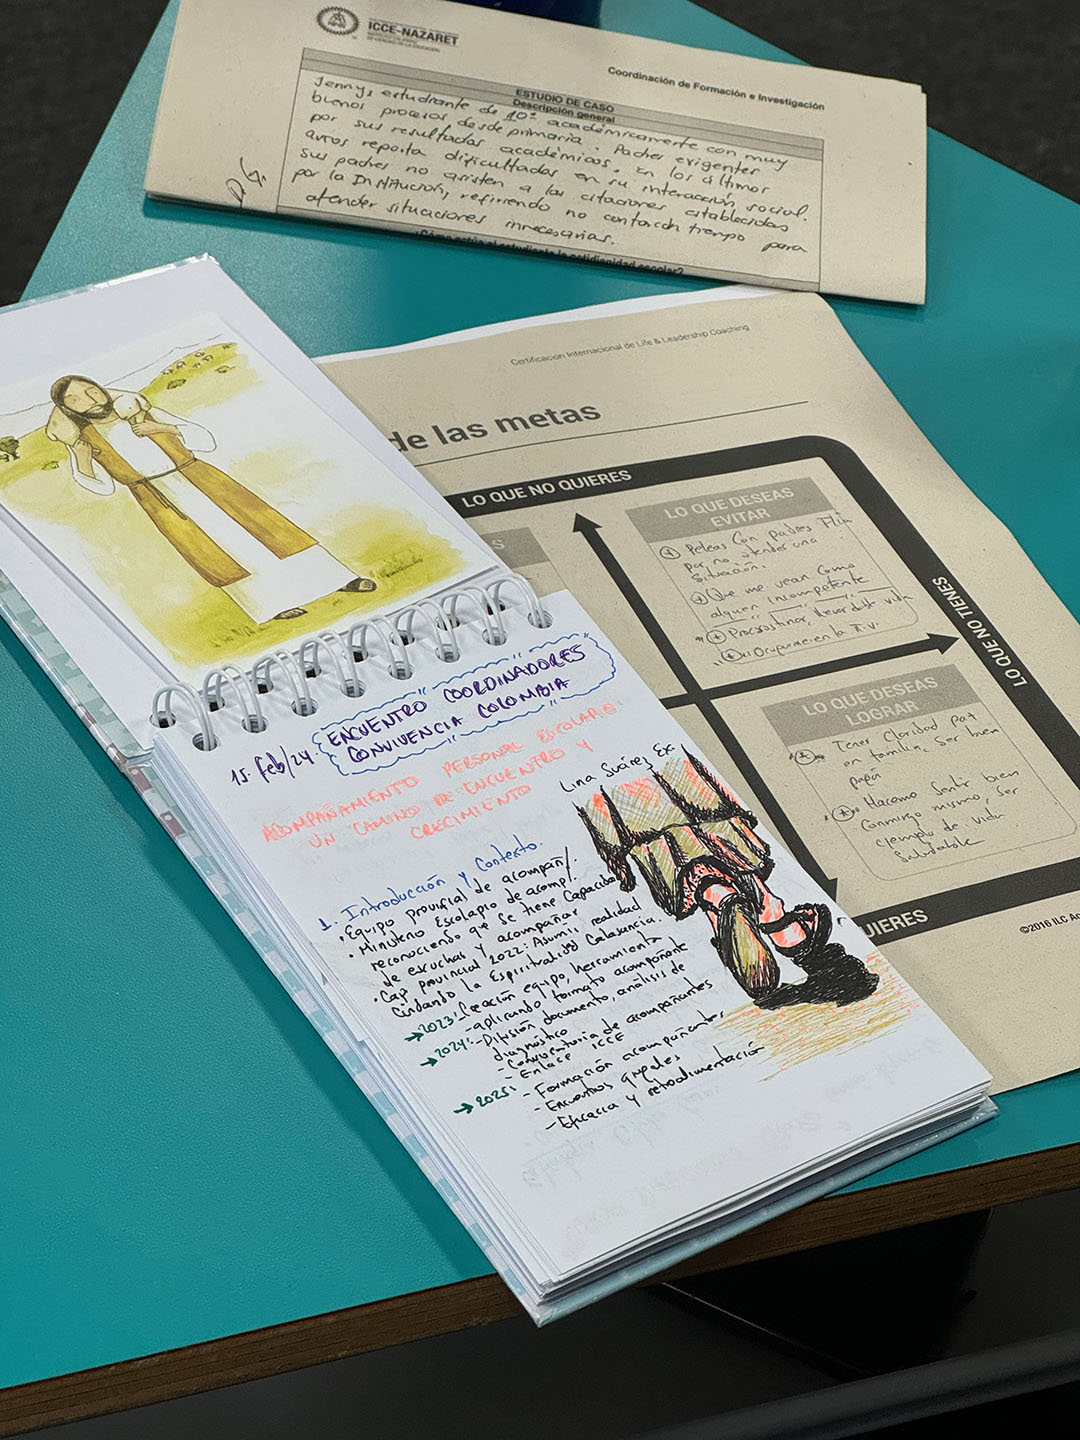 ICCE-NAZARET
INSTITUTO CALASANZ
DE CIENCIAS DE LA EDUCACIÓN
Coordinación de Formación e Investigación
ESTUDIO DE CASO
Descripción general
Jennys estudiante de 10° académicamente con muy
buenos procesos desde primaria. Padres exigentes
por sus resultados académicos. En los últimos
años reporta dificultades en su interacción social.
sus padres no asisten a las citaciones establecidas
por la Institución, refiriendo no contar con tiempo para
atender situaciones innecesarias.
¿Cómo actúa el estudiante la cotidianidad escolar?
Certificacion Internacional de Life & Leadership Coaching
de las metas
LO QUE NO QUIERES
S
LO QUE DESEAS
EVITAR
Peleas con padres Flia
por no atender una
situación.
Que me vean como
alguien incompetente
Procrastinar,
Ocuparme en la T.V.
LO QUE NO TIENES
LO QUE DESEAS
LOGRAR
Tener Claridad Pat
en familia, Ser buen
papá
Hacerme Sentir bien
Conmigo mismo, ser
ejemplo de vida
Saludable
UIERES
©2016 ILC Ac
15. feb/24.
ENCUENTRO COORDINADORES
CONVIVENCIA COLOMBIA
ACOMPAÑAMIENTO PERSONAL ESCOLAPIO:
UN CAMINO DE ENCUENTRO Y
CRECIMIENTO
Lina Suárez Ex
1. Introducción y Contexto.
• Equipo provincial de acompañ/.
• Ministerio Escolapio de acomp/.
reconociendo que se tiene Capacidad
de escuchar y acompañar
• Cap provincial 2022: Asumir realidad
Cuidando la Espiritualidad Calasancia.
→ 2023: Creación equipo, herramienta
- aplicando formato acompañante
→ 2024: - Difusión documento, análisis de
diagnóstico
- Convocatoria de acompañantes
- Enlace ICCE
→ 2025: - Formación acompañantes
- Encuentros grupales
- Eficacia y retroalimentación